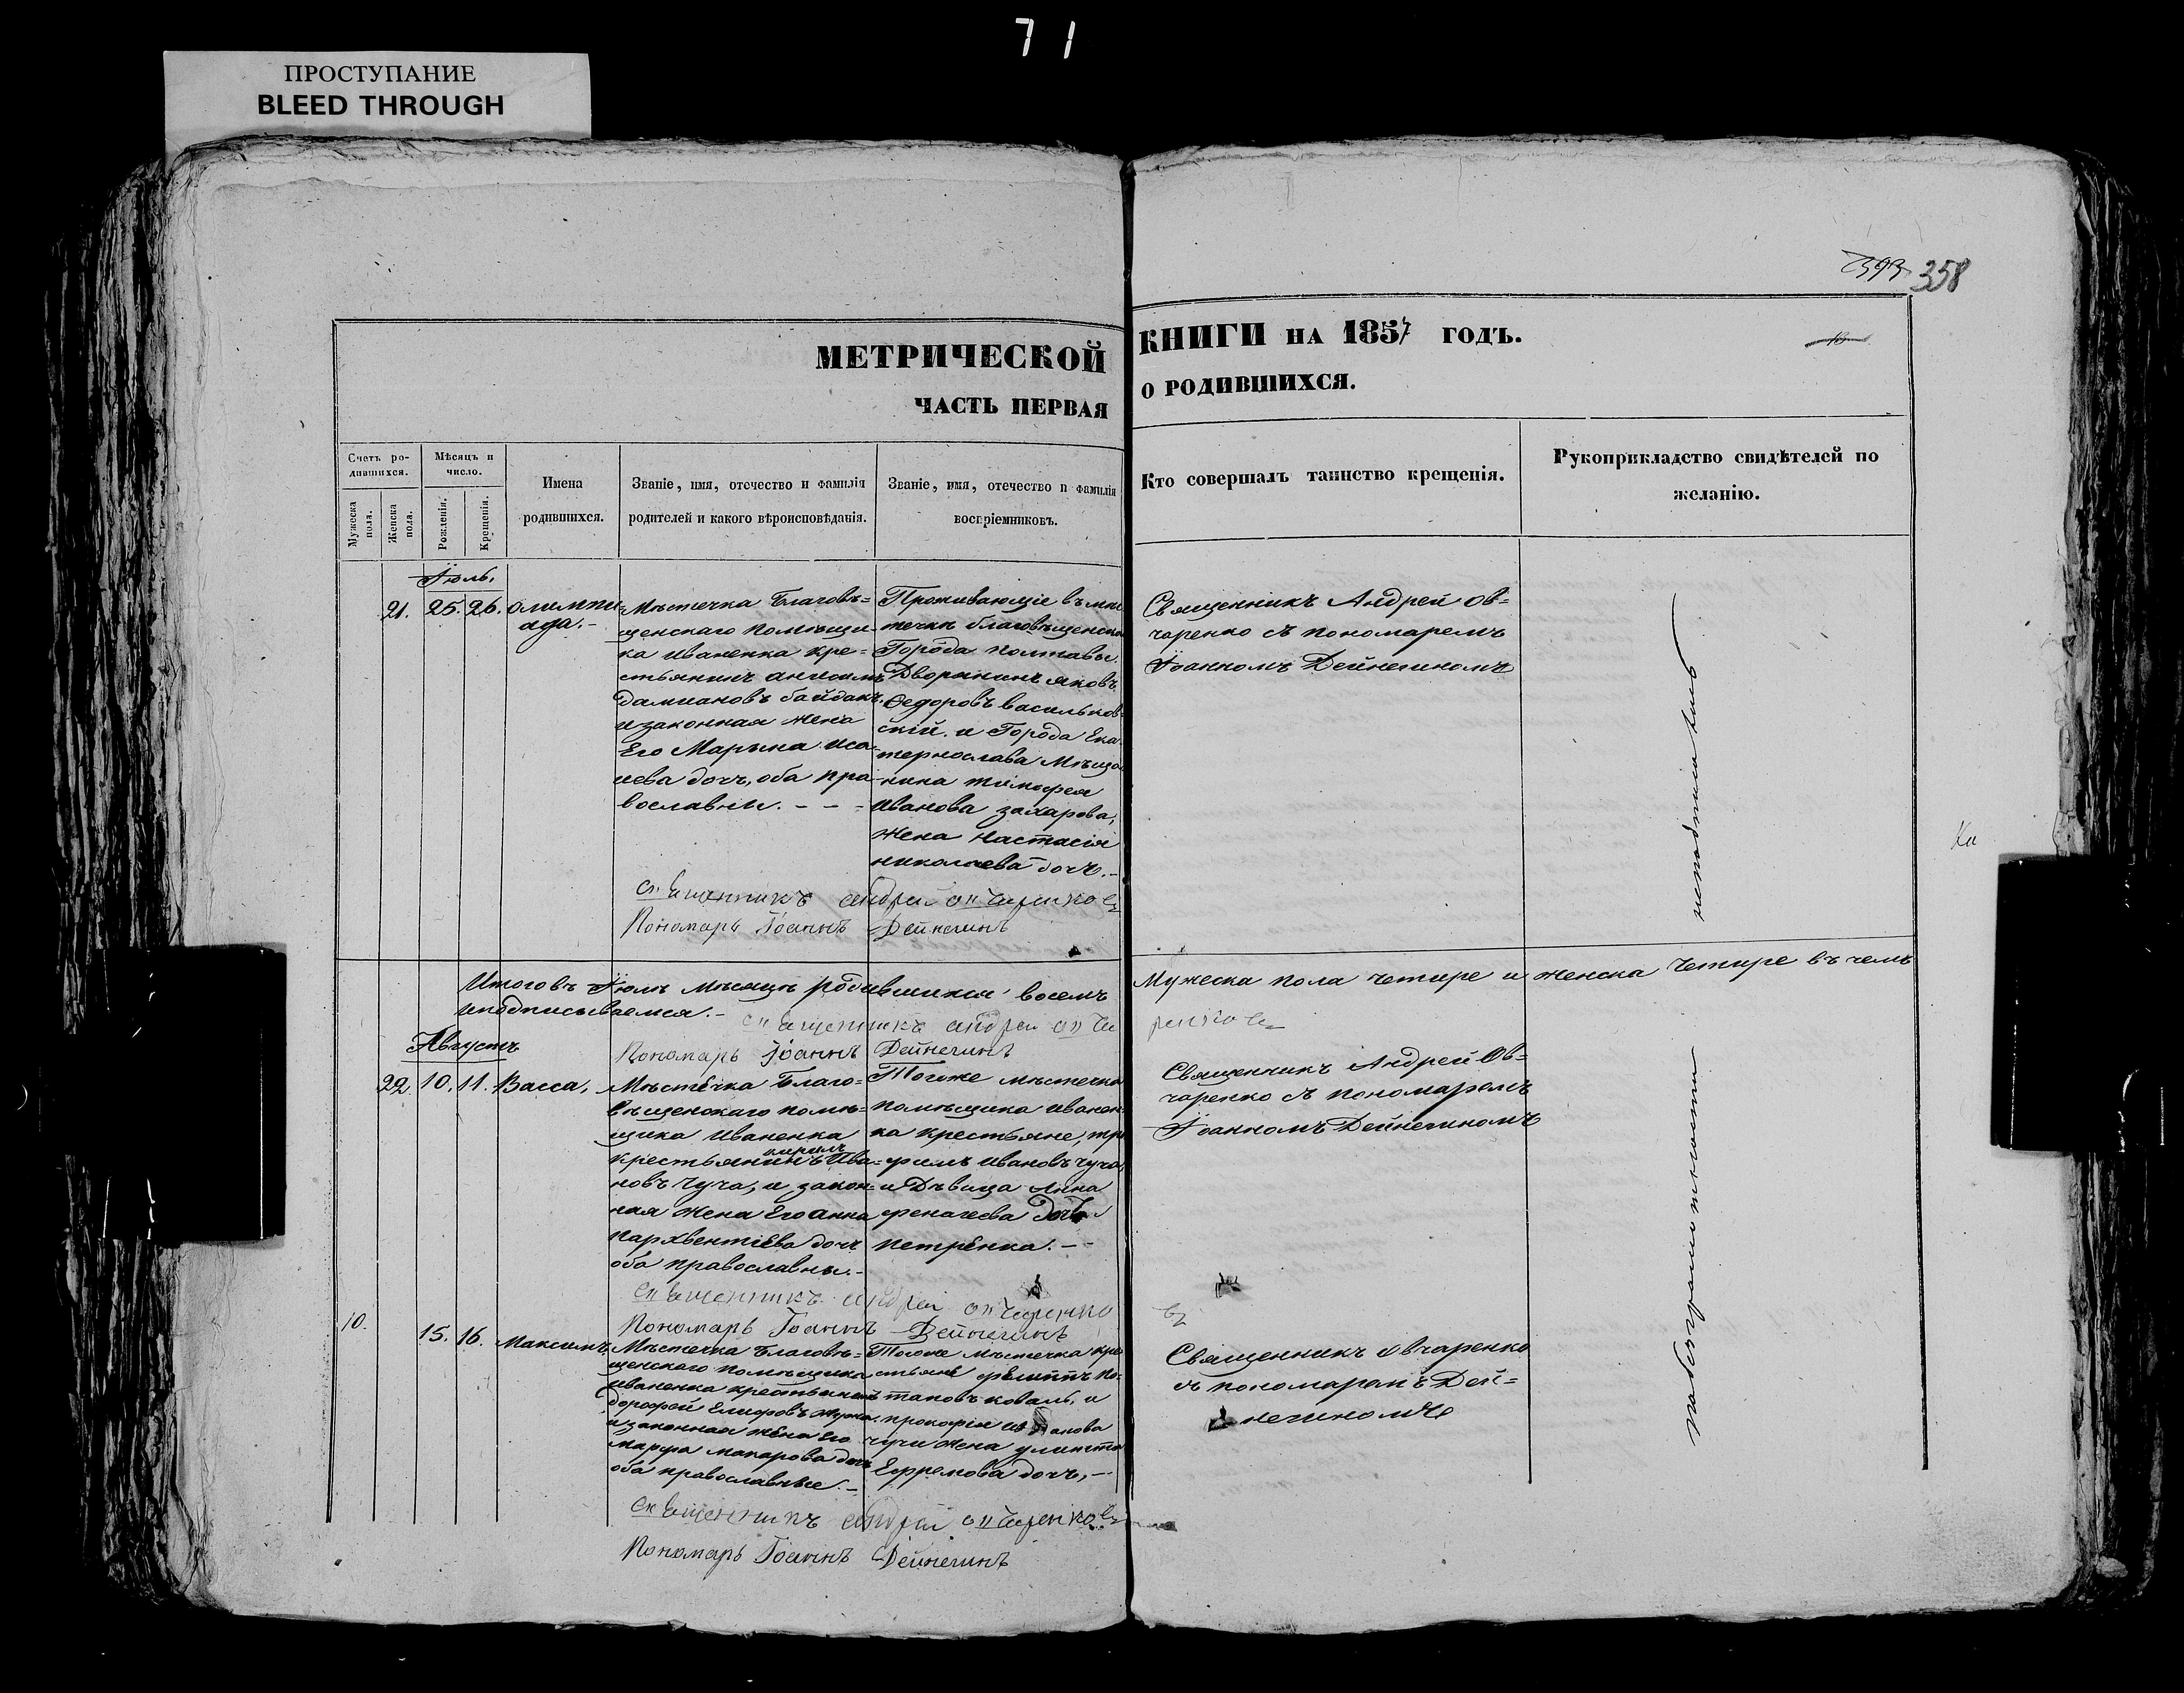 71
ПРОСТУПАНИЕ
BLEED THROUGH
393 358
МЕТРИЧЕСКОЙ
ЧАСТЬ ПЕРВАЯ
КНИГИ НА 1857 ГОДЪ.
О РОДИВШИХСЯ.
Счетъ ро-
дившихся.
Мужеска пола.
Женска пола.
Мѣсяцъ и
число.
Рожденія.
Крещенія.
Имена
родившихся.
Званіе, имя, отечество и фамилія
родителей и какого вѣроисповѣданія.
Званіе, имя, отечество и фамилія
воспріемниковъ.
Кто совершалъ таинство крещенія.
Рукоприкладство свидѣтелей по
желанію.
Іюль.
21. 25. 26. Олимпи=
ада.-
Мѣстечка Благовѣ=
щенскаго помѣщи-
ка Иваненка кре=
стьянинъ
Даміановъ Байдакъ
и законная жена
Его Марына Иса-
иева дочь, оба пра-
вославни. - - -
Проживающіе въ
течкѣ благовѣщенско
Города Полтавы.
Дворянинъ Яковъ
Федоровъ Васильков-
скій. и Города Ека-
теринослава Мѣща-
нина Тимофея
Иванова Захарова,
Жена Настасія
Николаева дочь.-
Священникъ Андрей Ов=
чаренко съ пономаремъ
Іоанномъ Дейнегиномъ
Священникъ Андрей Овчаренко
Пономарь Іоаннъ Дейнегинъ
Итого въ Іюлѣ Мѣсяцѣ родившихся восемь Мужеска пола четире и женска четире въ чемъ
и подписываемся.-
Священникъ Андрей Овча ренко
Пономарь Іоаннъ Дейнегинъ
Августъ
22. 10. 11. Васса,
Мѣстечка Благо=
вѣщенскаго помѣ=
щика Иваненка
крестьянинъ Ива=
новъ Чуча, и закон=
ная жена Его Анна
Пархвентіева дочь
оба православны.-
Тогоже мѣстечка
помѣщика Иванен
ка крестьяне, Тро
фимъ Ивановъ Чуча
и Дѣвица Анна
дочь
Петренка.- -
Священникъ Андрей Ов=
чаренко съ пономаремъ
Іоанномъ Дейнегиномъ
Священникъ Андрей Овчаренко
Пономарь Іоаннъ Дейнегинъ
10. 15. 16. Максимъ
Мѣстечка Благовѣ=
щенскаго помѣщика
Иваненка крестьянинъ
Дорофей
и законная жена Его
Марфа Макарова дочь
оба православные.-
Тогоже Мѣстечка кре
стьяне Филиппъ По-
таповъ Коваль, и
Прокофія
Чучи жена
Ефремова дочь,-
Священникъ Овчаренко
съ пономаремъ Дей=
негиномъ
Священникъ Андрей Овчаренко
Пономарь Іоаннъ Дейнегинъ